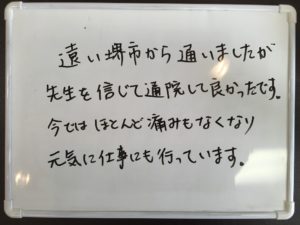 遠い堺市から通いましたが
先生を信じて通院して良かったです。
今ではほとんど痛みもなくなり
元気に仕事にも行っています。